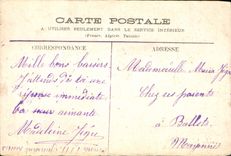 CARTE POSTALE
A UTILISER SEULEMENT DANS LE SERVICE INTÉRIEUR
(France, Algérie, Tunisie)
CORRESPONDANCE
ADRESSE
Mille bons baisers
J'attends de toi une
réponse immédiate
Ta sœur aimante
Madeleine
Mademoiselle Maria
Chez ses parents
à Ballots
Mayenne